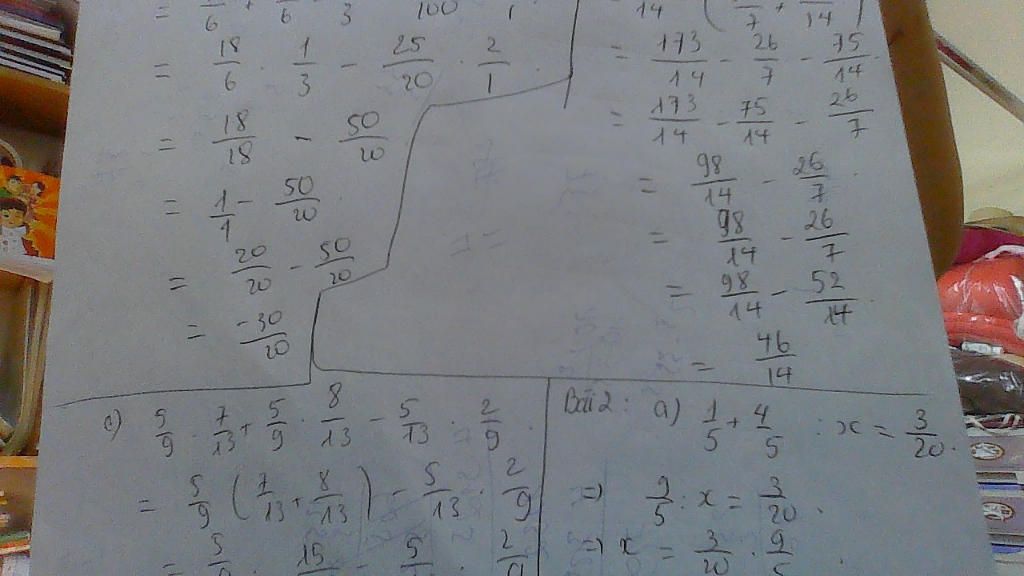 = 18/6 . 1/3 - 25/20 . 2/1 .
= 18/18 - 50/20
= 1/1 - 50/20
= 20/20 - 50/20
= -30/20
14
= 173/14 - 26/7 - 75/14
= 173/14 - 75/14 - 26/7
= 98/14 - 26/7 .
= 98/14 - 26/7
= 98/14 - 52/14 .
= 46/14
c) 5/9 . 7/13 + 5/9 . 8/13 - 5/13 . 2/9 .
= 5/9 (7/13 + 8/13) - 5/13 . 2/9
Bài 2 : a) 1/5 + 4/5 : x = 3/20 .
=> 9/5 : x = 3/20 .